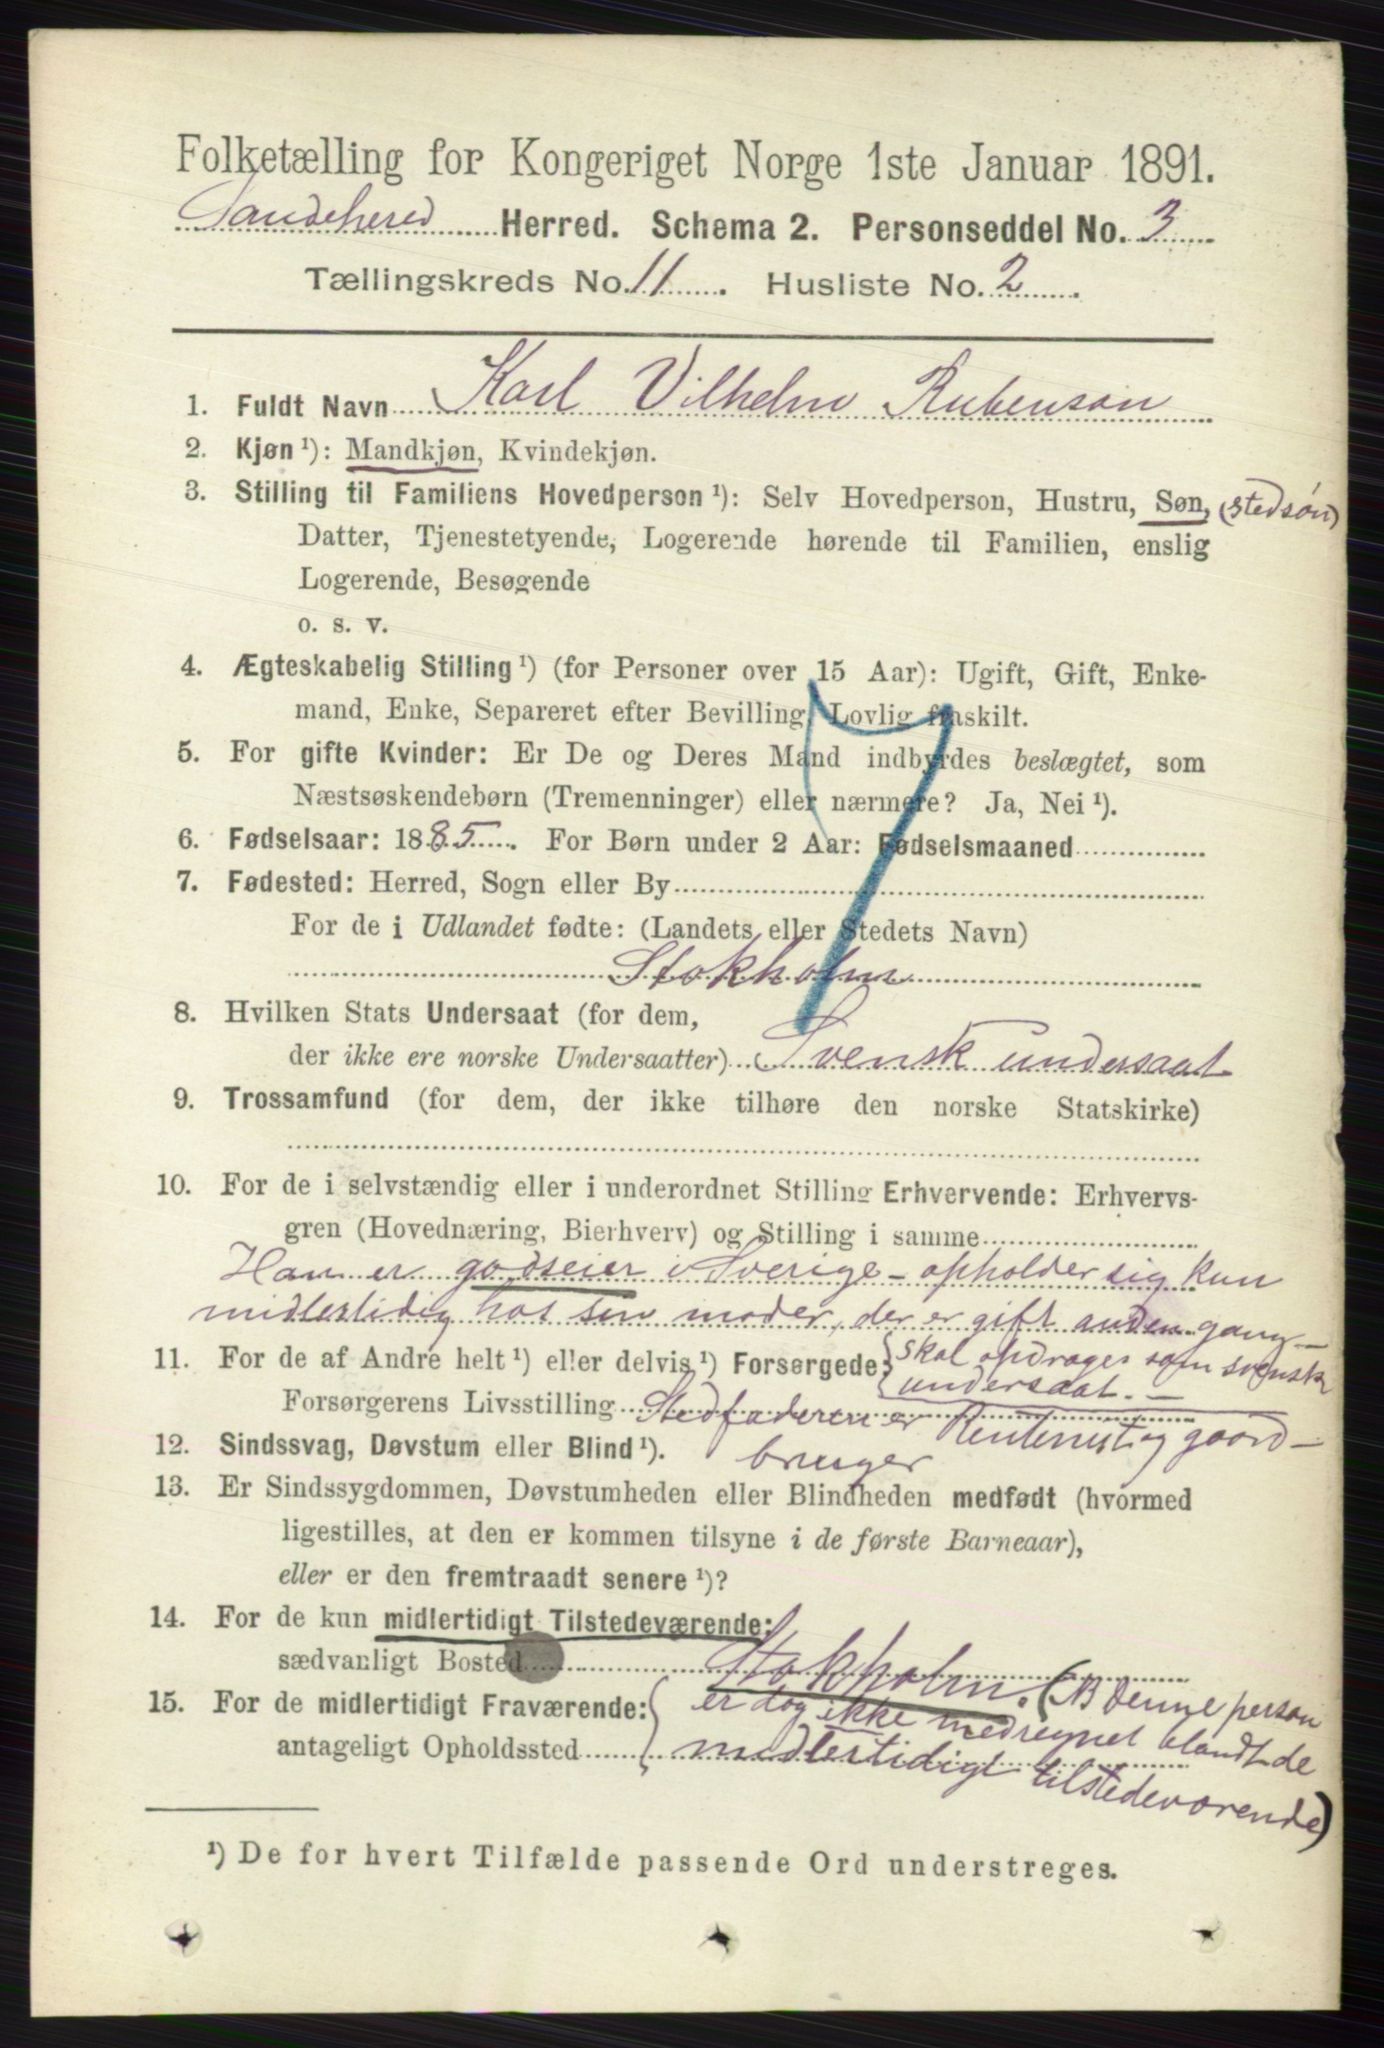 Folketælling for Kongeriget Norge 1ste Januar 1891.
Sandehered Herred. Schema 2. Personseddel No. 3
Tællingskreds No. 11. Husliste No. 2.
1. Fuldt Navn Karl Vilhelm Rubenson
2. Kjøn¹): Mandkjøn, Kvindekjøn.
3. Stilling til Familiens Hovedperson¹): Selv Hovedperson, Hustru, Søn, (stedsøn)
Datter, Tjenestetyende, Logerende hørende til Familien, enslig
Logerende, Besøgende
o. s. v.
4. Ægteskabelig Stilling¹) (for Personer over 15 Aar): Ugift, Gift, Enke-
mand, Enke, Separeret efter Bevilling, Lovlig fraskilt.
5. For gifte Kvinder: Er De og Deres Mand indbyrdes beslægtet, som
Næstsøskendebørn (Tremenninger) eller nærmere? Ja, Nei¹).
6. Fødselsaar: 1885. For Børn under 2 Aar: Fødselsmaaned
7. Fødested: Herred, Sogn eller By
For de i Udlandet fødte: (Landets eller Stedets Navn)
Stokholm
8. Hvilken Stats Undersaat (for dem,
der ikke ere norske Undersaatter) Svensk undersaat
9. Trossamfund (for dem, der ikke tilhøre den norske Statskirke)
10. For de i selvstændig eller i underordnet Stilling Erhvervende: Erhvervs-
gren (Hovednæring, Bierhverv) og Stilling i samme
Han er godseier i Sverige - opholder sig kun
midlertidig hos sin moder, der er gift anden gang -
11. For de af Andre helt¹) eller delvis¹) Forsørgede: skal opdrages som svensk
undersaat. -
Forsørgerens Livsstilling Stedfaderen er Rentenist og gaard-
12. Sindssvag, Døvstum eller Blind¹). bruger
13. Er Sindssygdommen, Døvstumheden eller Blindheden medfødt (hvormed
ligestilles, at den er kommen tilsyne i de første Barneaar),
eller er den fremtraadt senere¹)?
14. For de kun midlertidigt Tilstedeværende:
sædvanligt Bosted Stokholm. (NB denne person
15. For de midlertidigt Fraværende: er dog ikke medregnet blandt de
antageligt Opholdssted midlertidigt tilstedeværende)
¹) De for hvert Tilfælde passende Ord understreges.